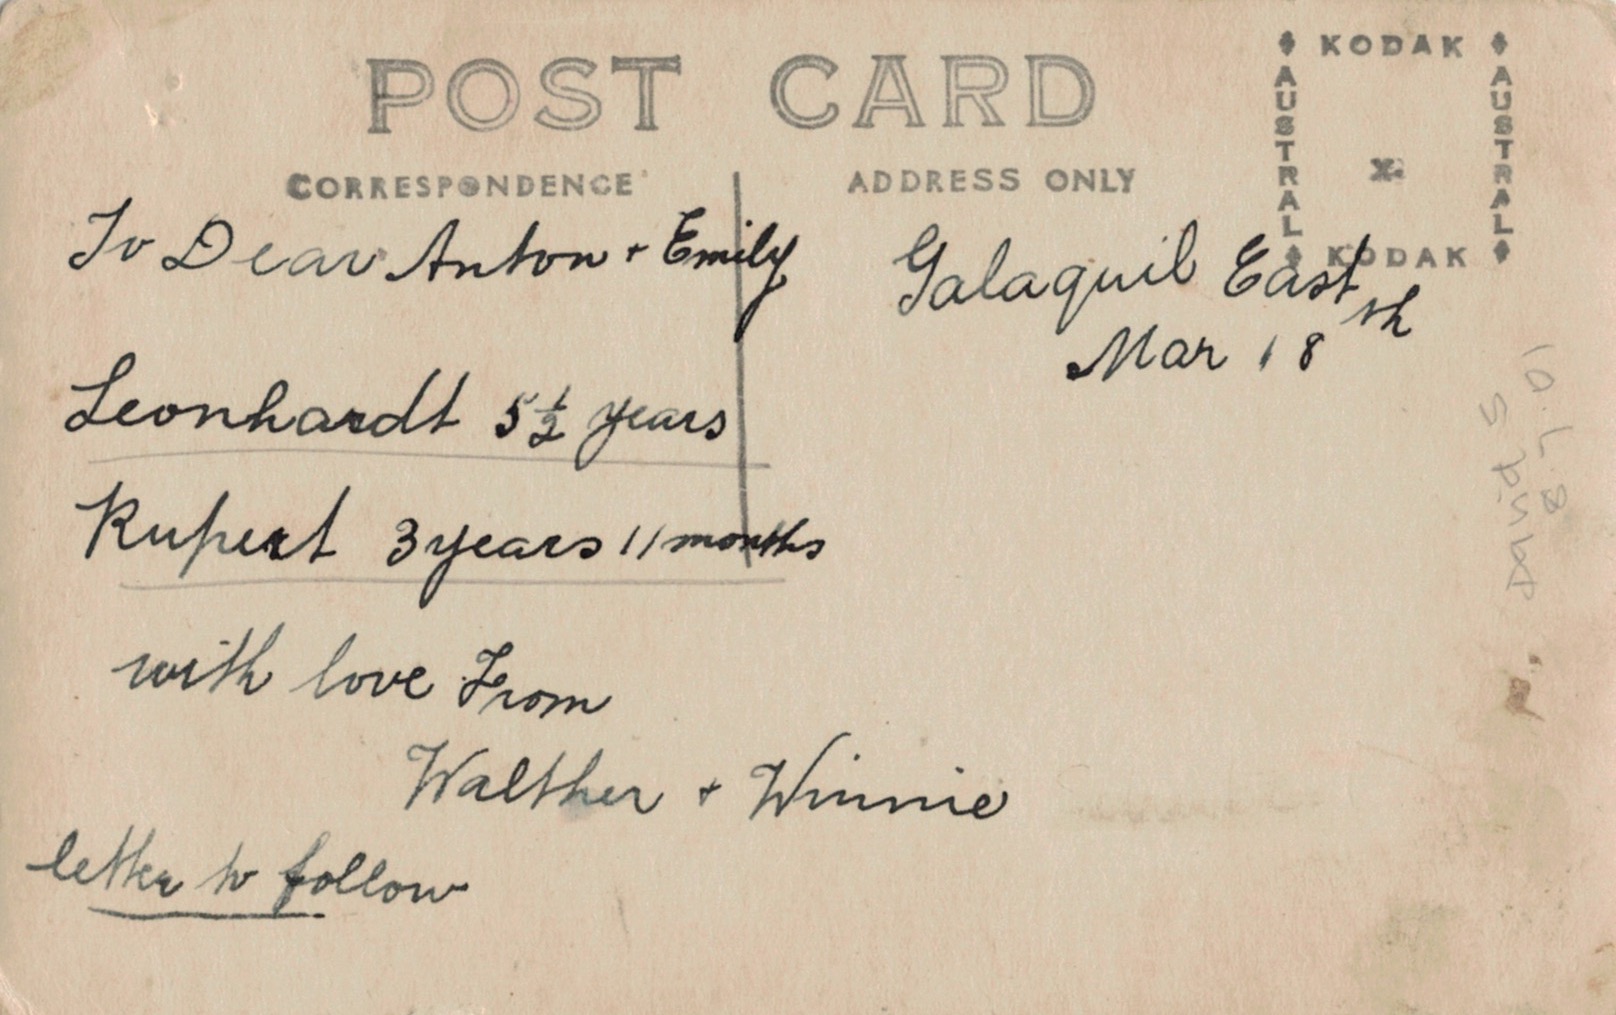 POST CARD
CORRESPONDENCE
ADDRESS ONLY
KODAK
AUSTRAL
AUSTRAL
KODAK
To Dear Anton + Emily
Galaquil East
Mar 18th
Leonhardt 5½ years
Rupert 3 years 11 months
with love From
Walther + Winnie
letter to follow